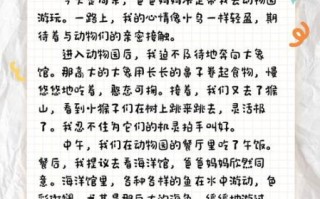 游玩。一路上，我的心情像小鸟一样轻盈，期
待着与动物们的亲密接触。
进入动物园后，我迫不及待地奔向大象
馆。那高大的大象用长长的鼻子卷起食物，慢
悠悠地吃着，憨态可掬。接着，我们又去了猴
山，看到小猴子们在树上跳来跳去，灵活极
了。我忍不住为它们的机灵拍手叫好。
中午，我们在动物园的餐厅里吃了午饭。
餐后，我提议去看海洋馆，爸爸妈妈欣然同
意。海洋馆里，各种各样的鱼在水中游动，色